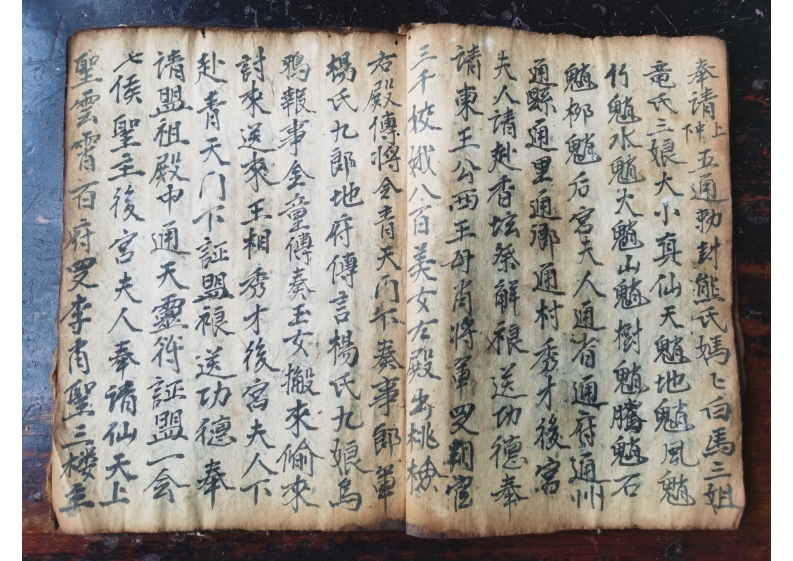 奉請上
𠇗五通勅封熊氏媽〻白馬三姐
竜氏三娘大小真仙天魈地魈風魈
竹魈水魈火魈山魈樹魈騰魈石
魈柳魈后宮夫人通省通府通州
通縣通里通鄉通村秀才後宮
夫人請赴香坛祭解禳送功德奉
請東王公西王母肖將軍 朝官
三千姣娥八百美女右殿出桃
右殿傳將令青天门下奏事郎軍
楊氏九郎地府傳言楊氏九娘烏
鴉報事金童傳奏玉女搬來偷來
討來送來王相秀才後宮夫人下
赴青天门下証盟禳送功德奉
請盟祖殿中通天靈符証盟一会
七侯聖主後宮夫人奉請仙天上
聖雲霄百府 李肖聖三楼主